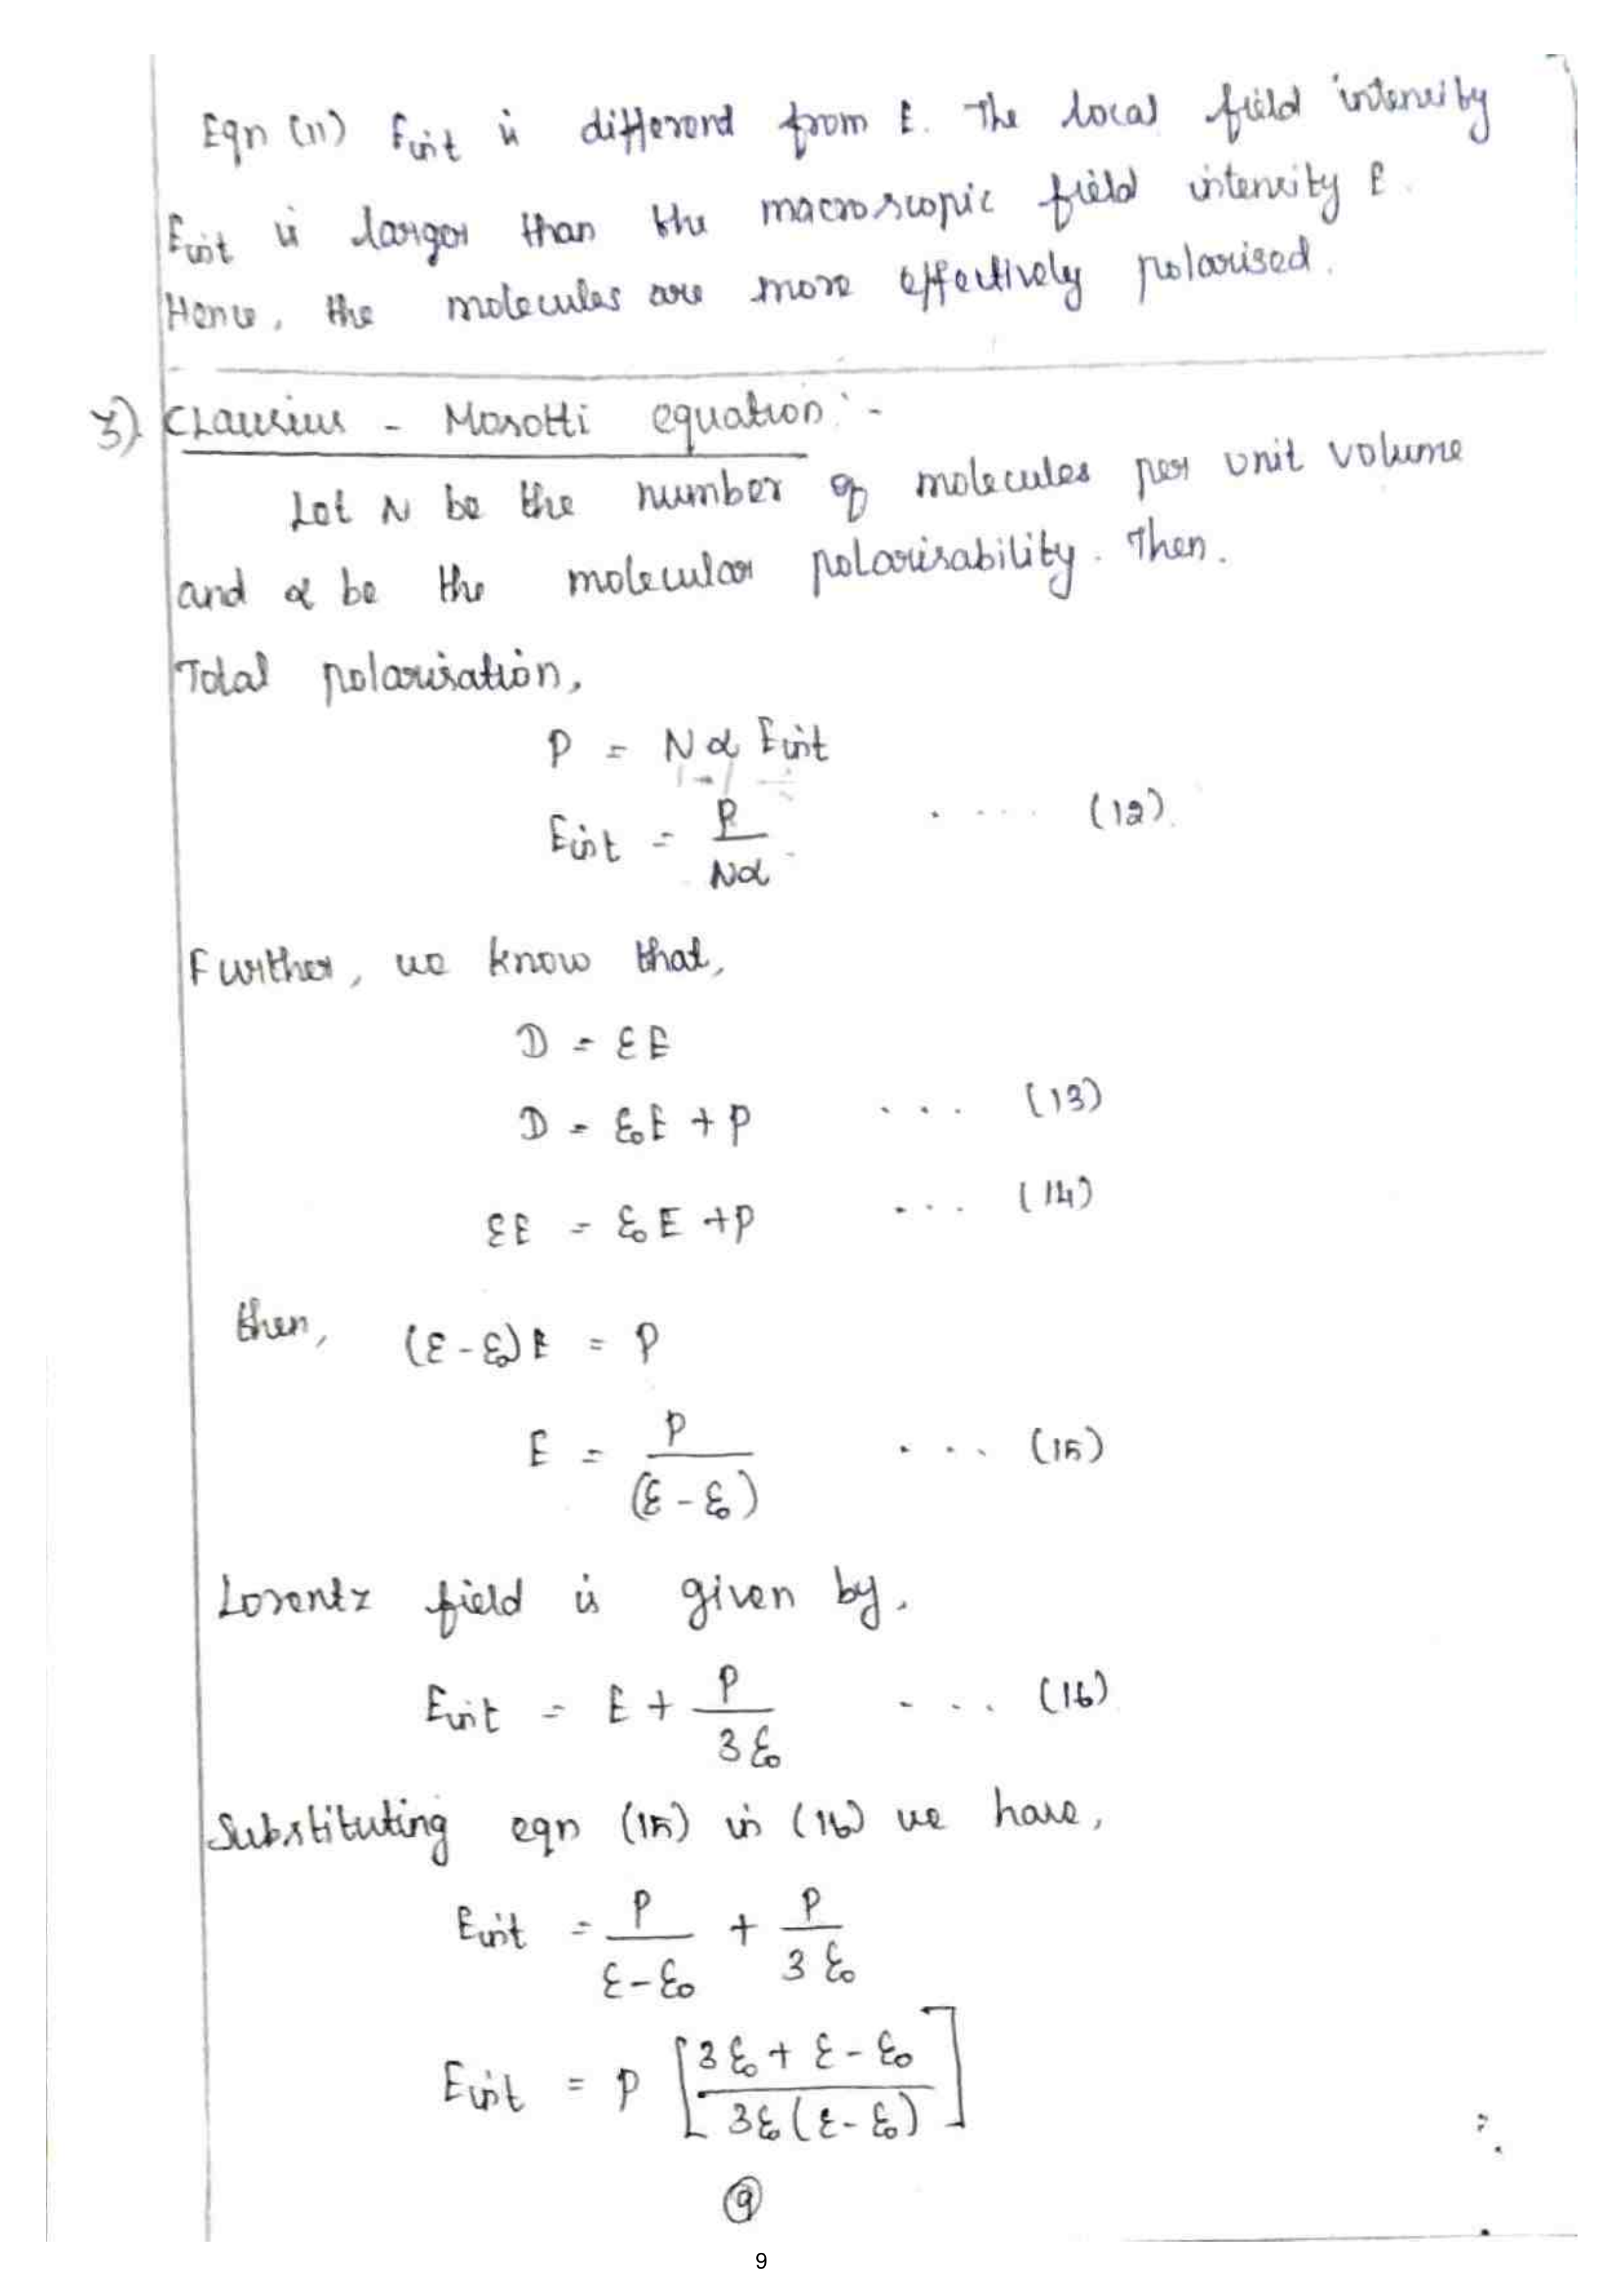 Eqn (11) Eint is different from E. The local field intensity
Eint is larger than the macroscopic field intensity E.
Hence, the molecules are more effectively polarised.
3) Clausius - Mosotti equation:-
Let N be the number of molecules per unit volume
and α be the molecular polarisability. Then.
Total polarisation,
P = Nα Eint
Eint = P / Nα .... (12)
Further, we know that,
D = εE
D = ε₀E + P ... (13)
εE = ε₀E + P ... (14)
then, (ε - ε₀)E = P
E = P / (ε - ε₀) .... (15)
Lorentz field is given by,
Eint = E + P / 3ε₀ .... (16)
Substituting eqn (15) in (16) we have,
Eint = P / ε - ε₀ + P / 3ε₀
Eint = P [3ε₀ + ε - ε₀ / 3ε₀(ε - ε₀)]
9
9